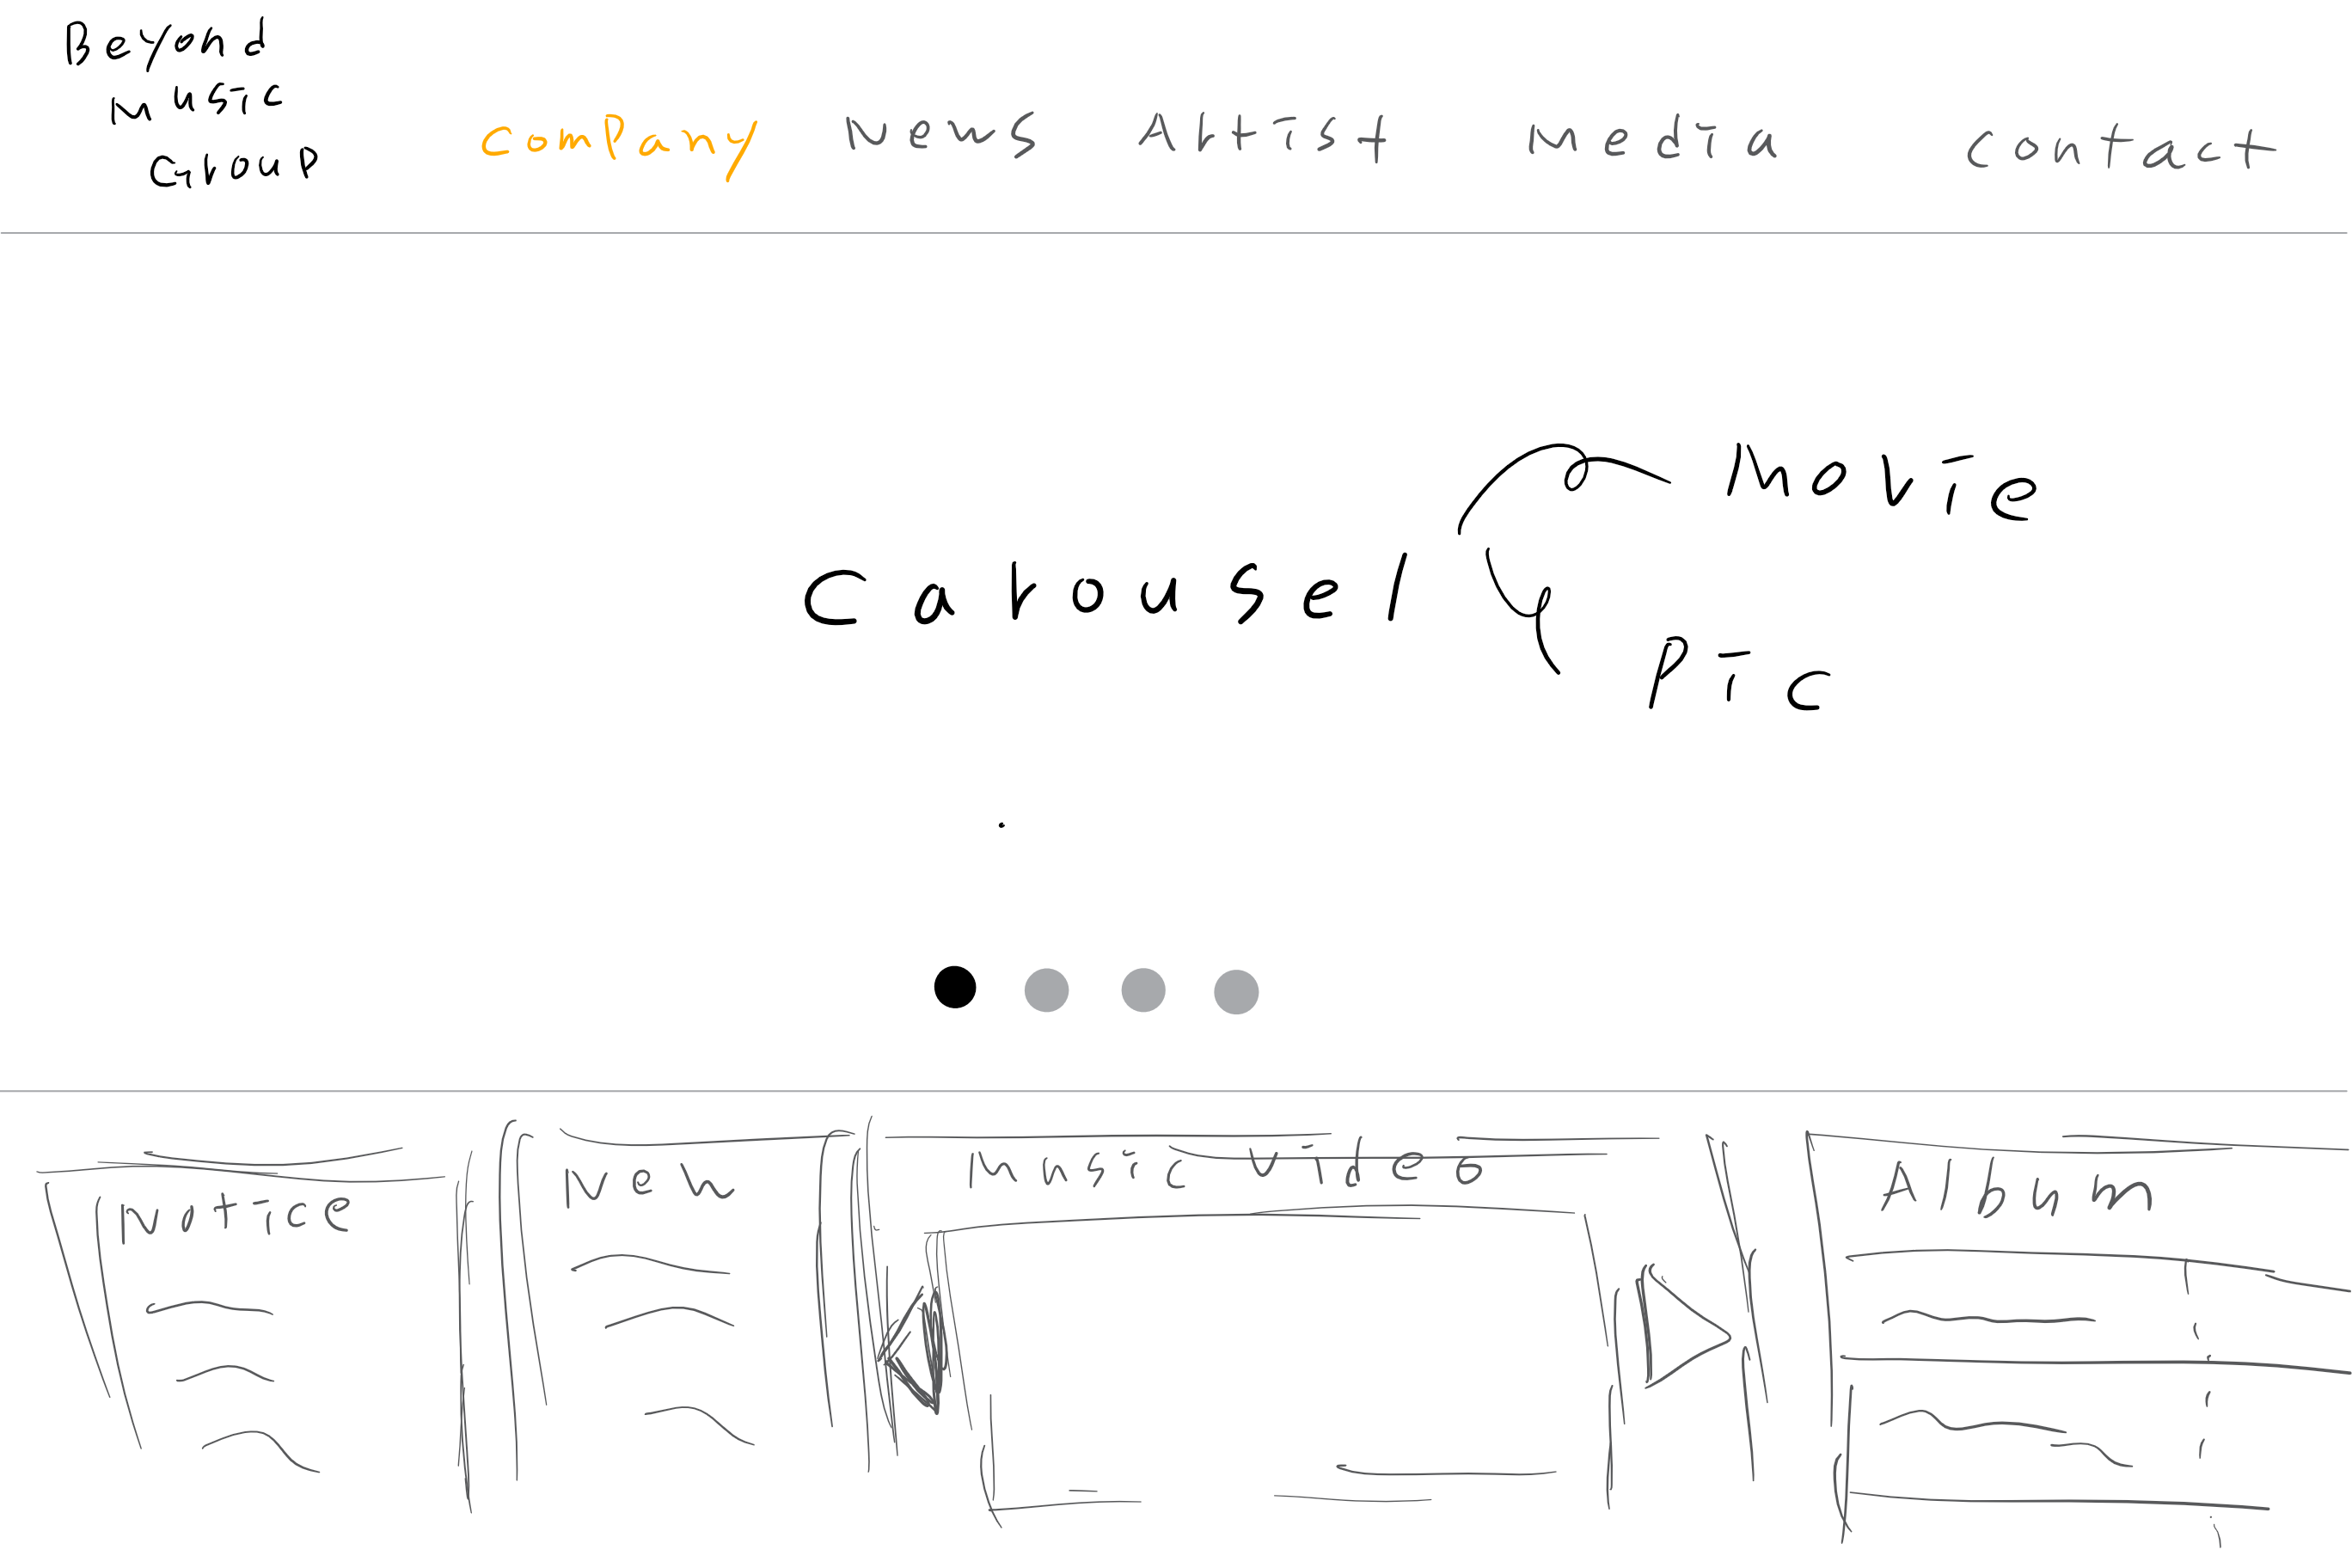 Beyond
Music
Group
Company News Artist Media Contact
Movie
Carousel
Pic
Notice New Music Video Album